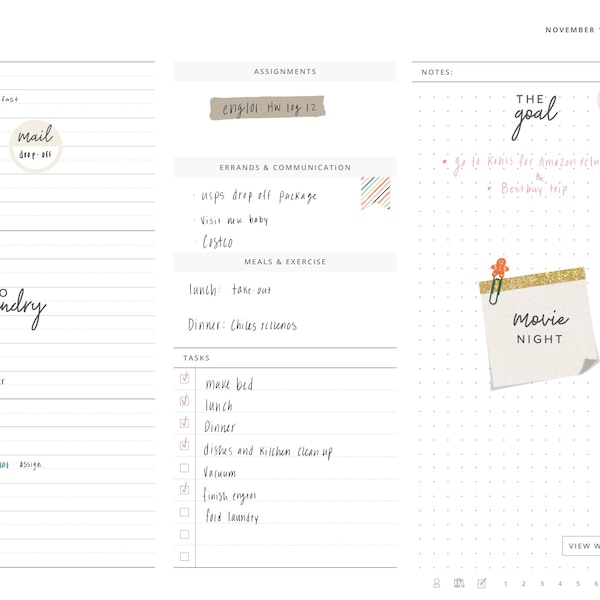 NOVEMBER
mail
drop-off
assign.
ASSIGNMENTS
eng101: HW log 12
ERRANDS & COMMUNICATION
· usps drop off package
· visit new baby
· Costco
MEALS & EXERCISE
lunch: take-out
Dinner: Chiles rellenos
TASKS
make bed
lunch
Dinner
dishes and kitchen clean up
Vacuum
finish eng101
fold laundry
NOTES:
THE
goal
• go to Kohls for Amazon
&
• Bestbuy trip
movie
NIGHT
VIEW
1 2 3 4 5 6